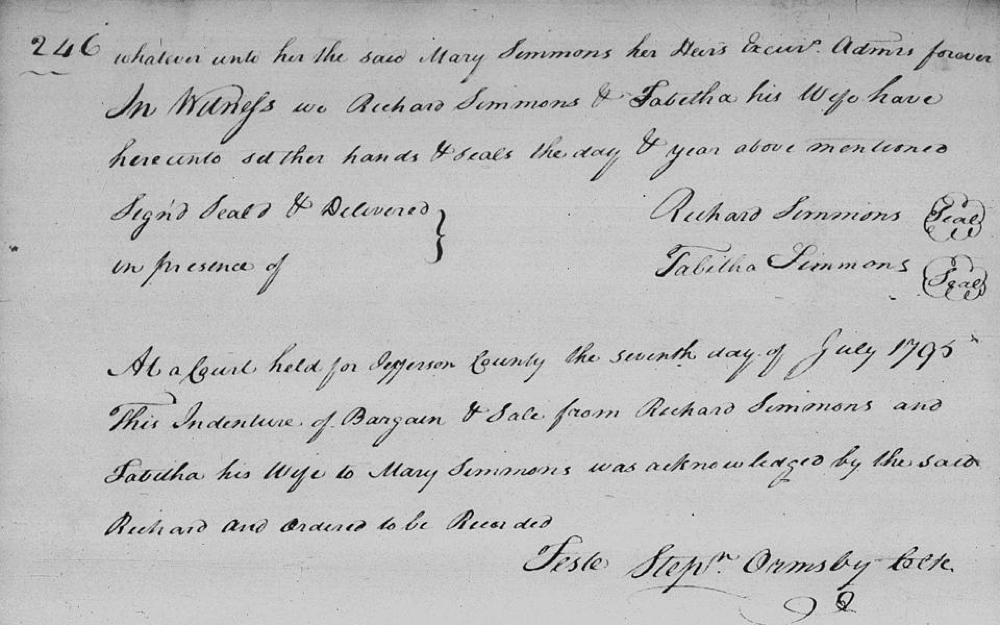 246 whatever unto her the said Mary Simmons her Heirs Execurs. Admrs forever
In Witness we Richard Simmons & Tabitha his Wife have
hereunto set ther hands & seals the day & year above mentioned
Sign'd Seal'd & Delivered } Richard Simmons Seal
in presence of Tabitha Simmons Seal
At a Court held for Jefferson County the seventh day of July 1795
This Indenture of Bargain & Sale from Richard Simmons and
Tabitha his Wife to Mary Simmons was acknowledged by the said
Richard and ordered to be Recorded
Teste Stepn. Ormsby Cclk.